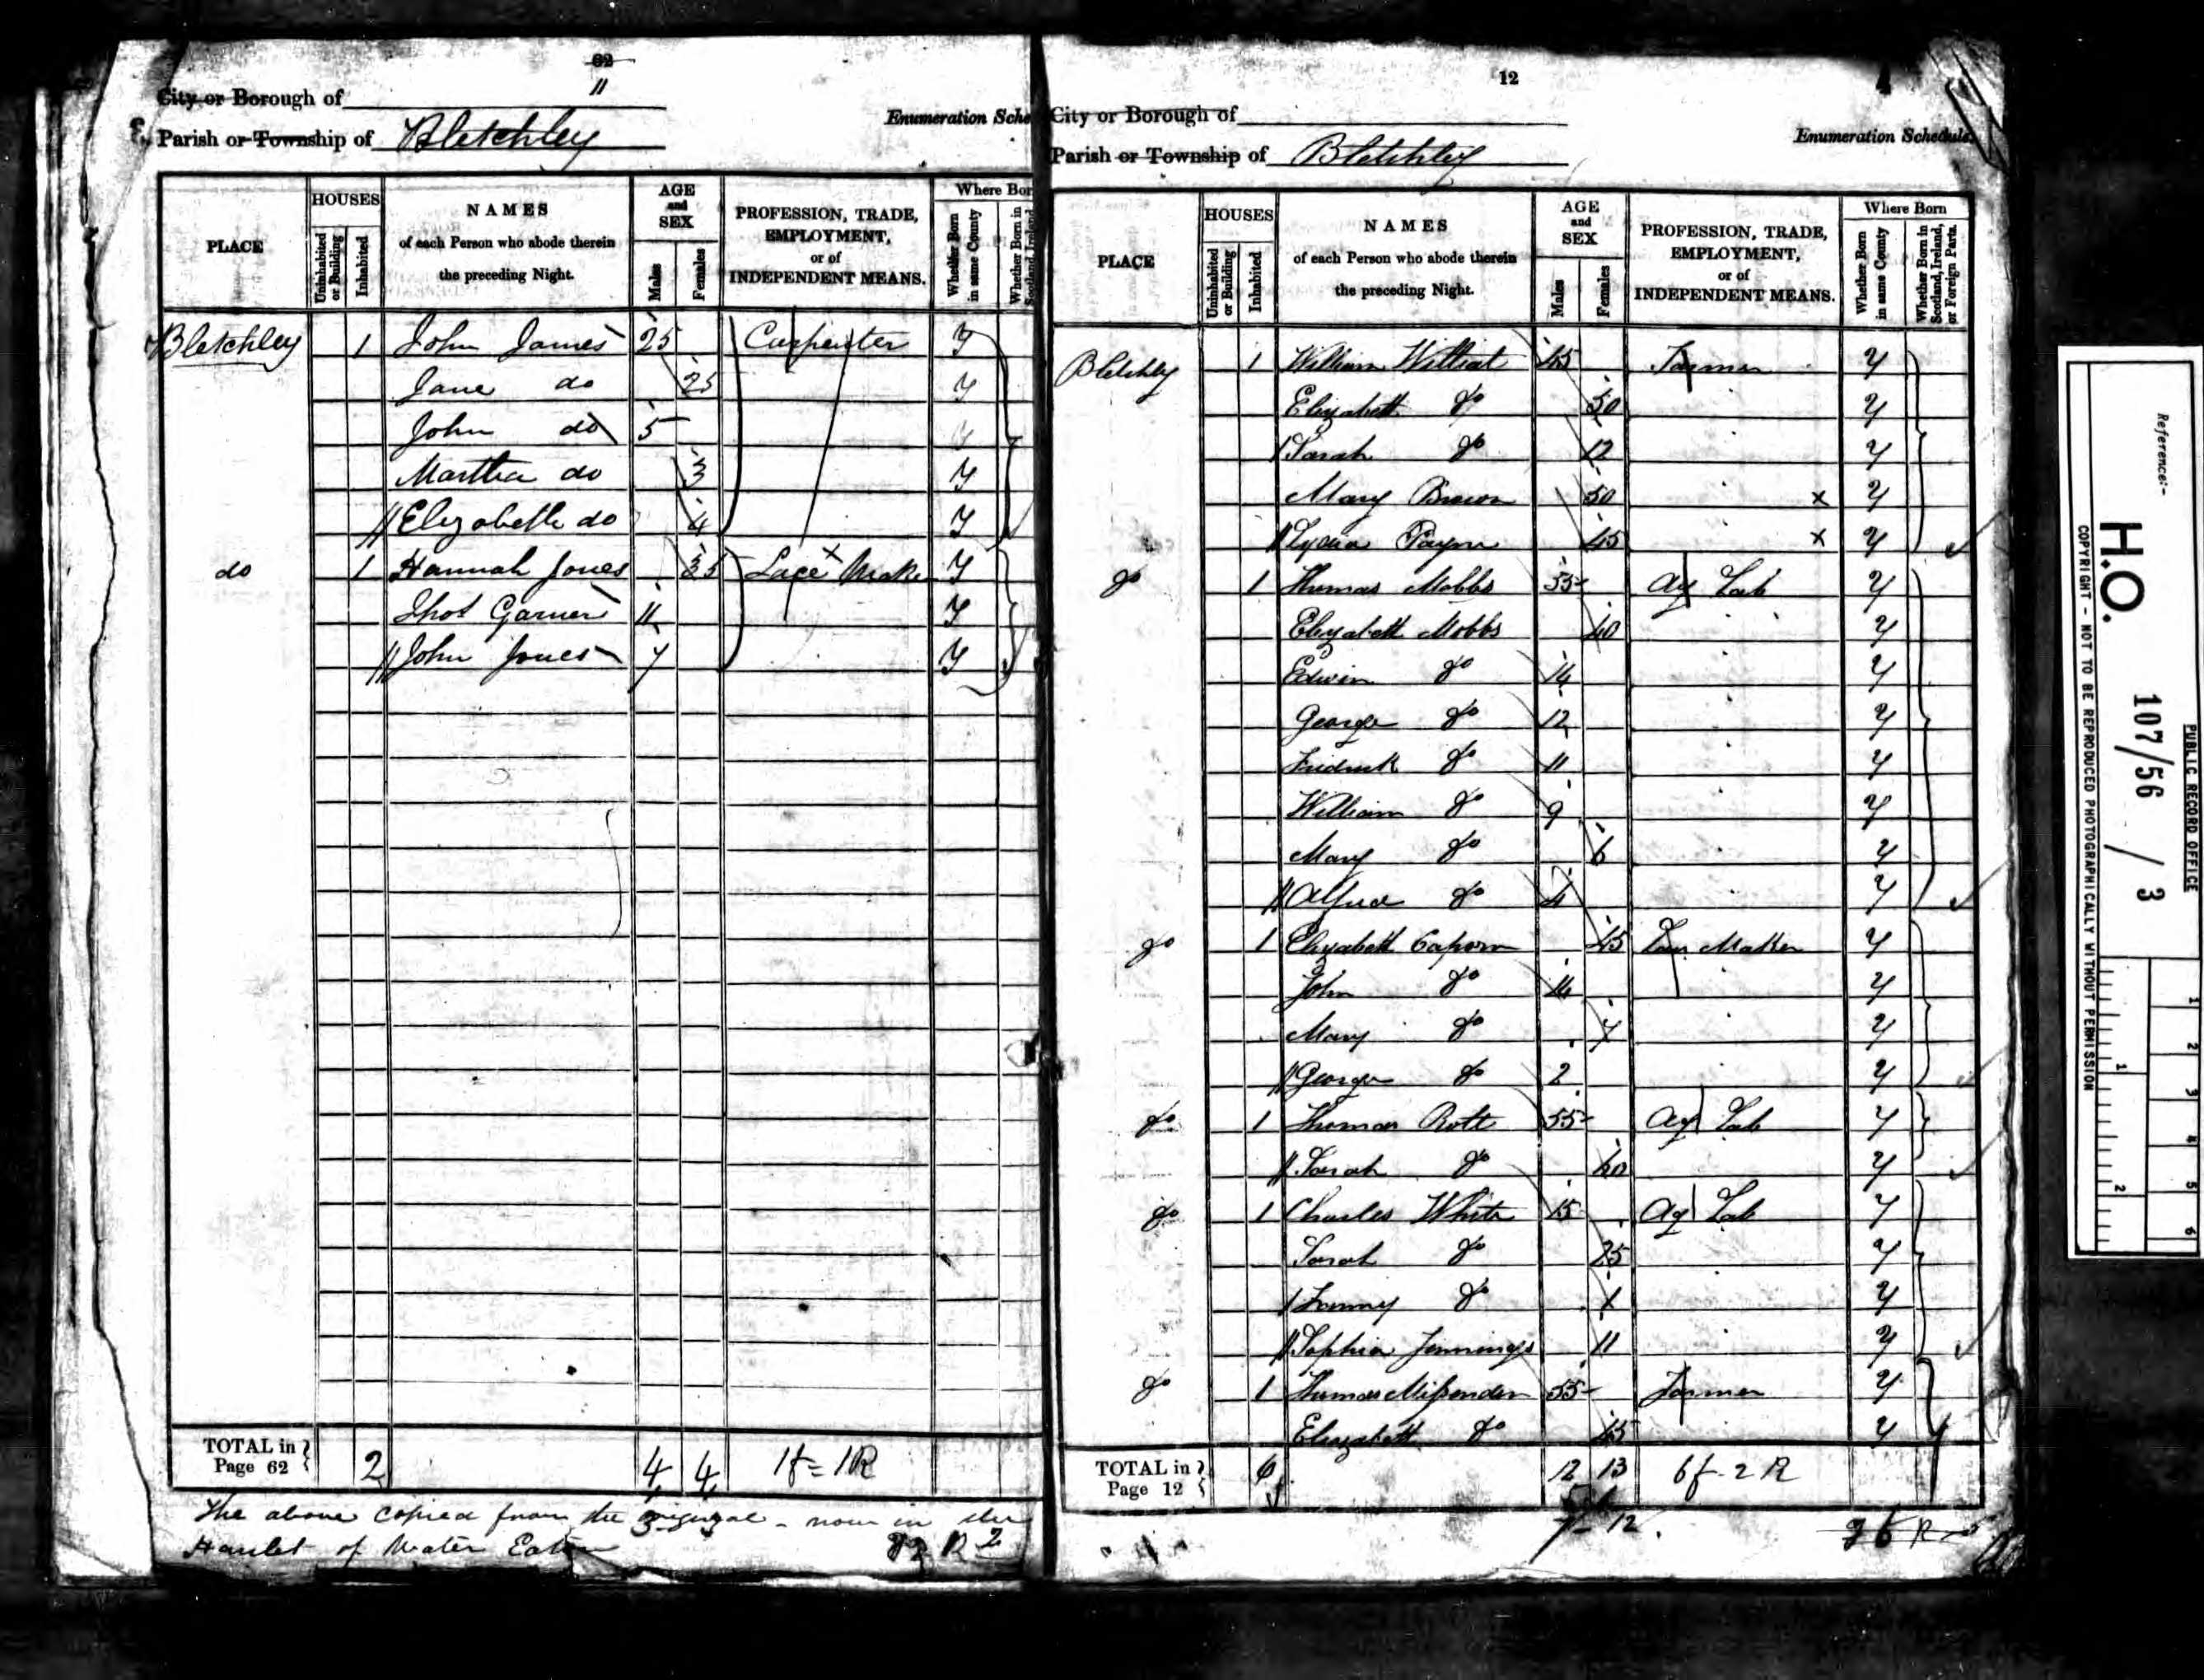 62
11
City or Borough of
Enumeration Sche
Parish or Township of Bletchley
PLACE
HOUSES
Uninhabited or Building
Inhabited
NAMES
of each Person who abode therein
the preceding Night.
AGE
and
SEX
Males
Females
PROFESSION, TRADE,
EMPLOYMENT,
or of
INDEPENDENT MEANS.
Where Bor
Whether Born in same County
Whether Born in Scotland, Ireland
Bletchley 1 John James 25 Carpenter Y
Jane do 25 Y
John do 5 Y
Martha do 3 Y
Elizabeth do 4 Y
do 1 Hannah Jones 35 Lace Make Y
Thos Garner 11 Y
John Jones 7 Y
TOTAL in Page 62 2 4 4 1f = 1R
The above copied from the original - now in the
Hamlet of Water Eaton
12
City or Borough of
Enumeration Schedule.
Parish or Township of Bletchley
PLACE
HOUSES
Uninhabited or Building
Inhabited
NAMES
of each Person who abode therein
the preceding Night.
AGE
and
SEX
Males
Females
PROFESSION, TRADE,
EMPLOYMENT,
or of
INDEPENDENT MEANS.
Where Born
Whether Born in same County
Whether Born in Scotland, Ireland, or Foreign Parts.
Bletchley 1 William 45 Farmer Y
Elizabeth do 50 Y
Sarah do 12 Y
Mary Brown 50 x Y
Lydia Payne 45 x Y
do 1 Thomas Mobbs 55 Ag Lab Y
Elizabeth Mobbs 40 Y
Edwin do 14 Y
George do 12 Y
Fredrick do 11 Y
William do 9 Y
Mary do 6 Y
Alfred do 4 Y
do 1 Elizabeth Caporn 45 Lace Maker Y
John do 14 Y
Mary do 7 Y
George do 2 Y
do 1 Thomas Rott 55 Ag Lab Y
Sarah do 60 Y
do 1 Charles White 25 Ag Lab Y
Sarah do 25 Y
Fanny do 1 Y
Sophia Jennings 11 Y
do 1 Thomas Missenden 55 Farmer Y
Elizabeth do 45 Y
TOTAL in Page 12 6 12 13 6f - 2R
7 - 12
Reference:-
PUBLIC RECORD OFFICE
H.O. 107/56 / 3
COPYRIGHT - NOT TO BE REPRODUCED PHOTOGRAPHICALLY WITHOUT PERMISSION
1 2 3 4 5 6
1 2